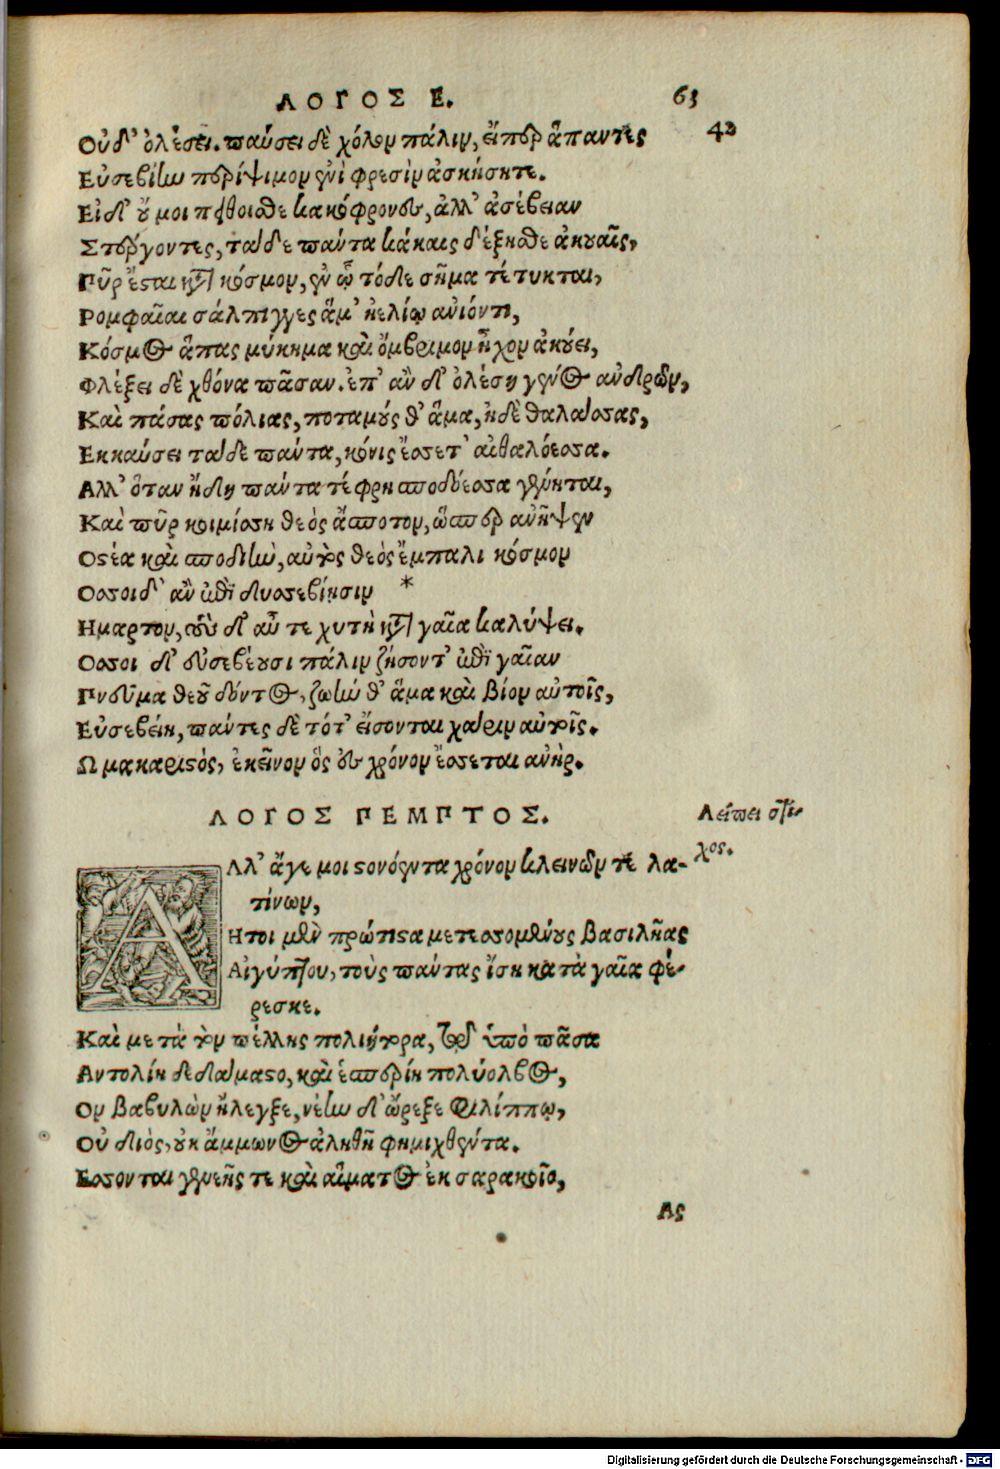 ΛΟΓΟΣ Ε. 63
42
Οὐδ' ὀλέσει. παύσει δὲ χόλον πάλιν, εἴπερ ἅπαντες
Εὐσεβίην περίψιμον ἐνὶ φρεσὶν ἀσκήσητε.
Εἰ δ' οὔ μοι πείθοισθε κακόφρονες, ἀλλ' ἀσέβειαν
Στέργοντες, ταῦδε πάντα κάκαις δέξησθε ἀκουαῖς,
Πῦρ ἔσται κατὰ κόσμον, ἐν ᾧ τόδε σῆμα τέτυκται,
Ρομφαῖαι σάλπιγγες ἅμ' ἠελίῳ ἀνιόντι,
Κόσμος ἅπας μύκημα καὶ ὄμβριμον ἦχον ἀκούει,
Φλέξει δὲ χθόνα πᾶσαν. ἐπ' ἂν δ' ὀλέσῃ γένος ἀνδρῶν,
Καὶ πάσας πόλιας, ποταμούς θ' ἅμα, ἠδὲ θαλάσσας,
Εκκαύσει ταῦδε πάντα, κόνις ἔσσετ' αἰθαλόεσσα.
Αλλ' ὅταν ἤδη πάντα τέφρη σποδόεσσα γένηται,
Καὶ πῦρ κοιμίσῃ θεὸς ἄσπετον, ὥσπερ ἀνῆψεν
Οστέα καὶ σποδιὴν, αὐτὸς θεὸς ἔμπαλι κόσμον
Οσσοι δ' ἂν ἐπὶ δυσσεβίῃσιν *
Ημαρτον, τοὺς δ' αὖ τε χυτὴ κατὰ γαῖα καλύψει.
Οσσοι δ' εὐσεβέουσι πάλιν ζήσοντ' ἐπὶ γαῖαν
Πνεῦμα θεοῦ δόντος, ζωήν θ' ἅμα καὶ βίον αὐτοῖς,
Εὐσεβέιη, πάντες δὲ τότ' εἴσονται χαίριν αὐτοῖς.
Ω μακαριστὸς, ἐκεῖνον ὃς ἐς χρόνον ἔσσεται ἀνήρ.
ΛΟΓΟΣ ΠΕΜΠΤΟΣ. Λείπει στί-
χος.
ΑΛλ' ἄγε μοι στονόεντα χρόνον κλεινῶν τέ λα-
τίνων,
Ητοι μὲν πρώτιστα μετεσσομένους βασιλῆας
Αἰγύπτου, τοὺς πάντας ἴση κατὰ γαῖα φέ-
ρεσκε.
Καὶ μετὰ τὸν πέλλης πολιήτορα, ᾧ ὑπὸ πᾶσα
Αντολίη δεδαίμαστο, καὶ ἑσπερίη πολύολβος,
Ον βαβυλὼν ἤλεγξε, νέκυν δ' ὤρεξε Φιλίππῳ,
Οὐ διός, οὐκ ἄμμωνος ἀληθῆ φημιχθέντα.
Εσσονται γενεῆς τε καὶ αἵματος ἐκ σαρακοῖο,
Ας
Digitalisierung gefördert durch die Deutsche Forschungsgemeinschaft - DFG